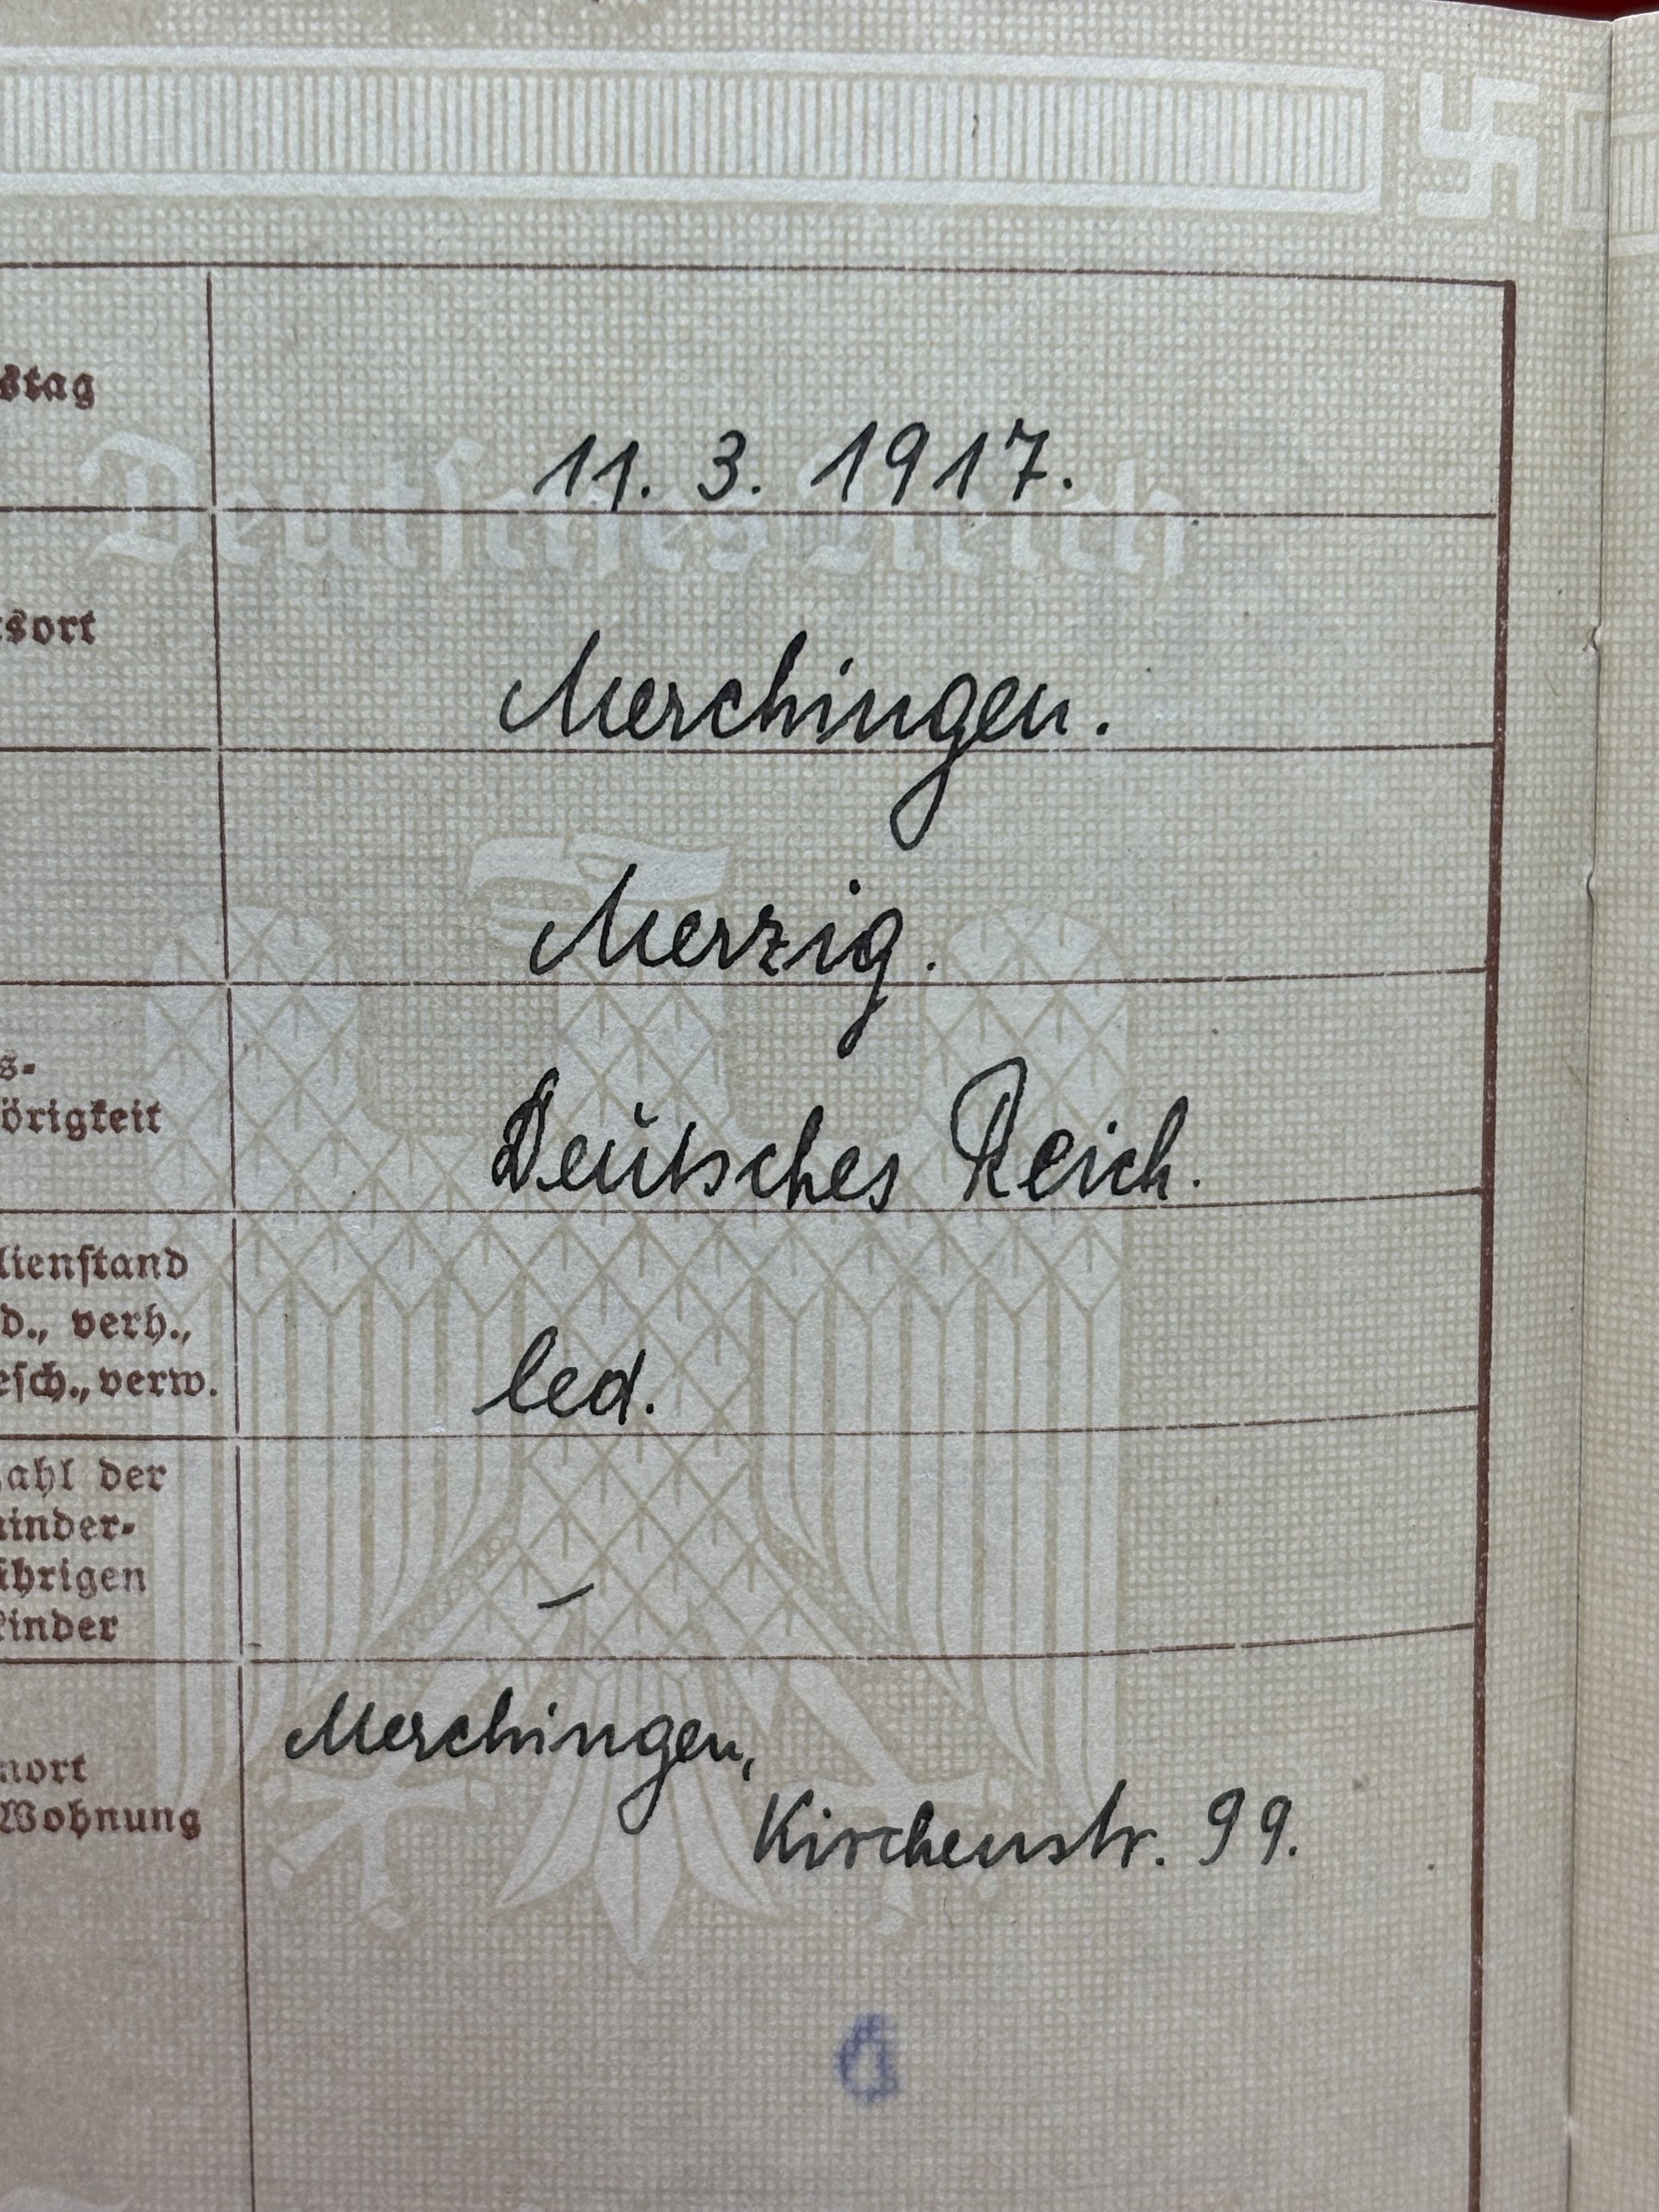 Deutsches Reich
stag
11. 3. 1917.
sort
Merchingen.
Merzig.
s-
örigkeit
Deutsches Reich.
lienstand
d., verh.,
esch., verw.
led.
ahl der
inder-
ährigen
kinder
–
Merchingen,
nort
Wohnung
Kirchenstr. 99.